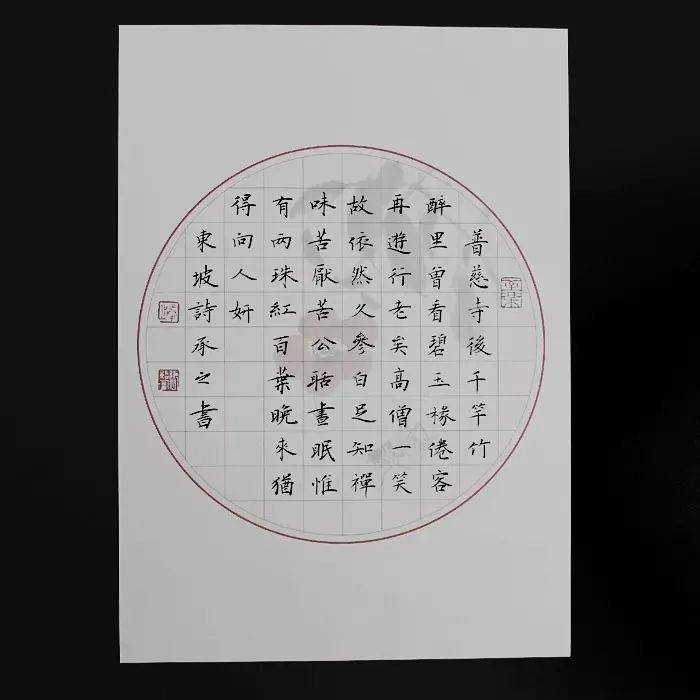 普慈寺後千竿竹
醉里曾看碧玉椽倦客
再遊行老矣高僧一笑
故依然久參白足知禪
味苦厭苦公聒晝眠惟
有兩珠紅百葉晚來猶
得向人妍
東坡詩承之書